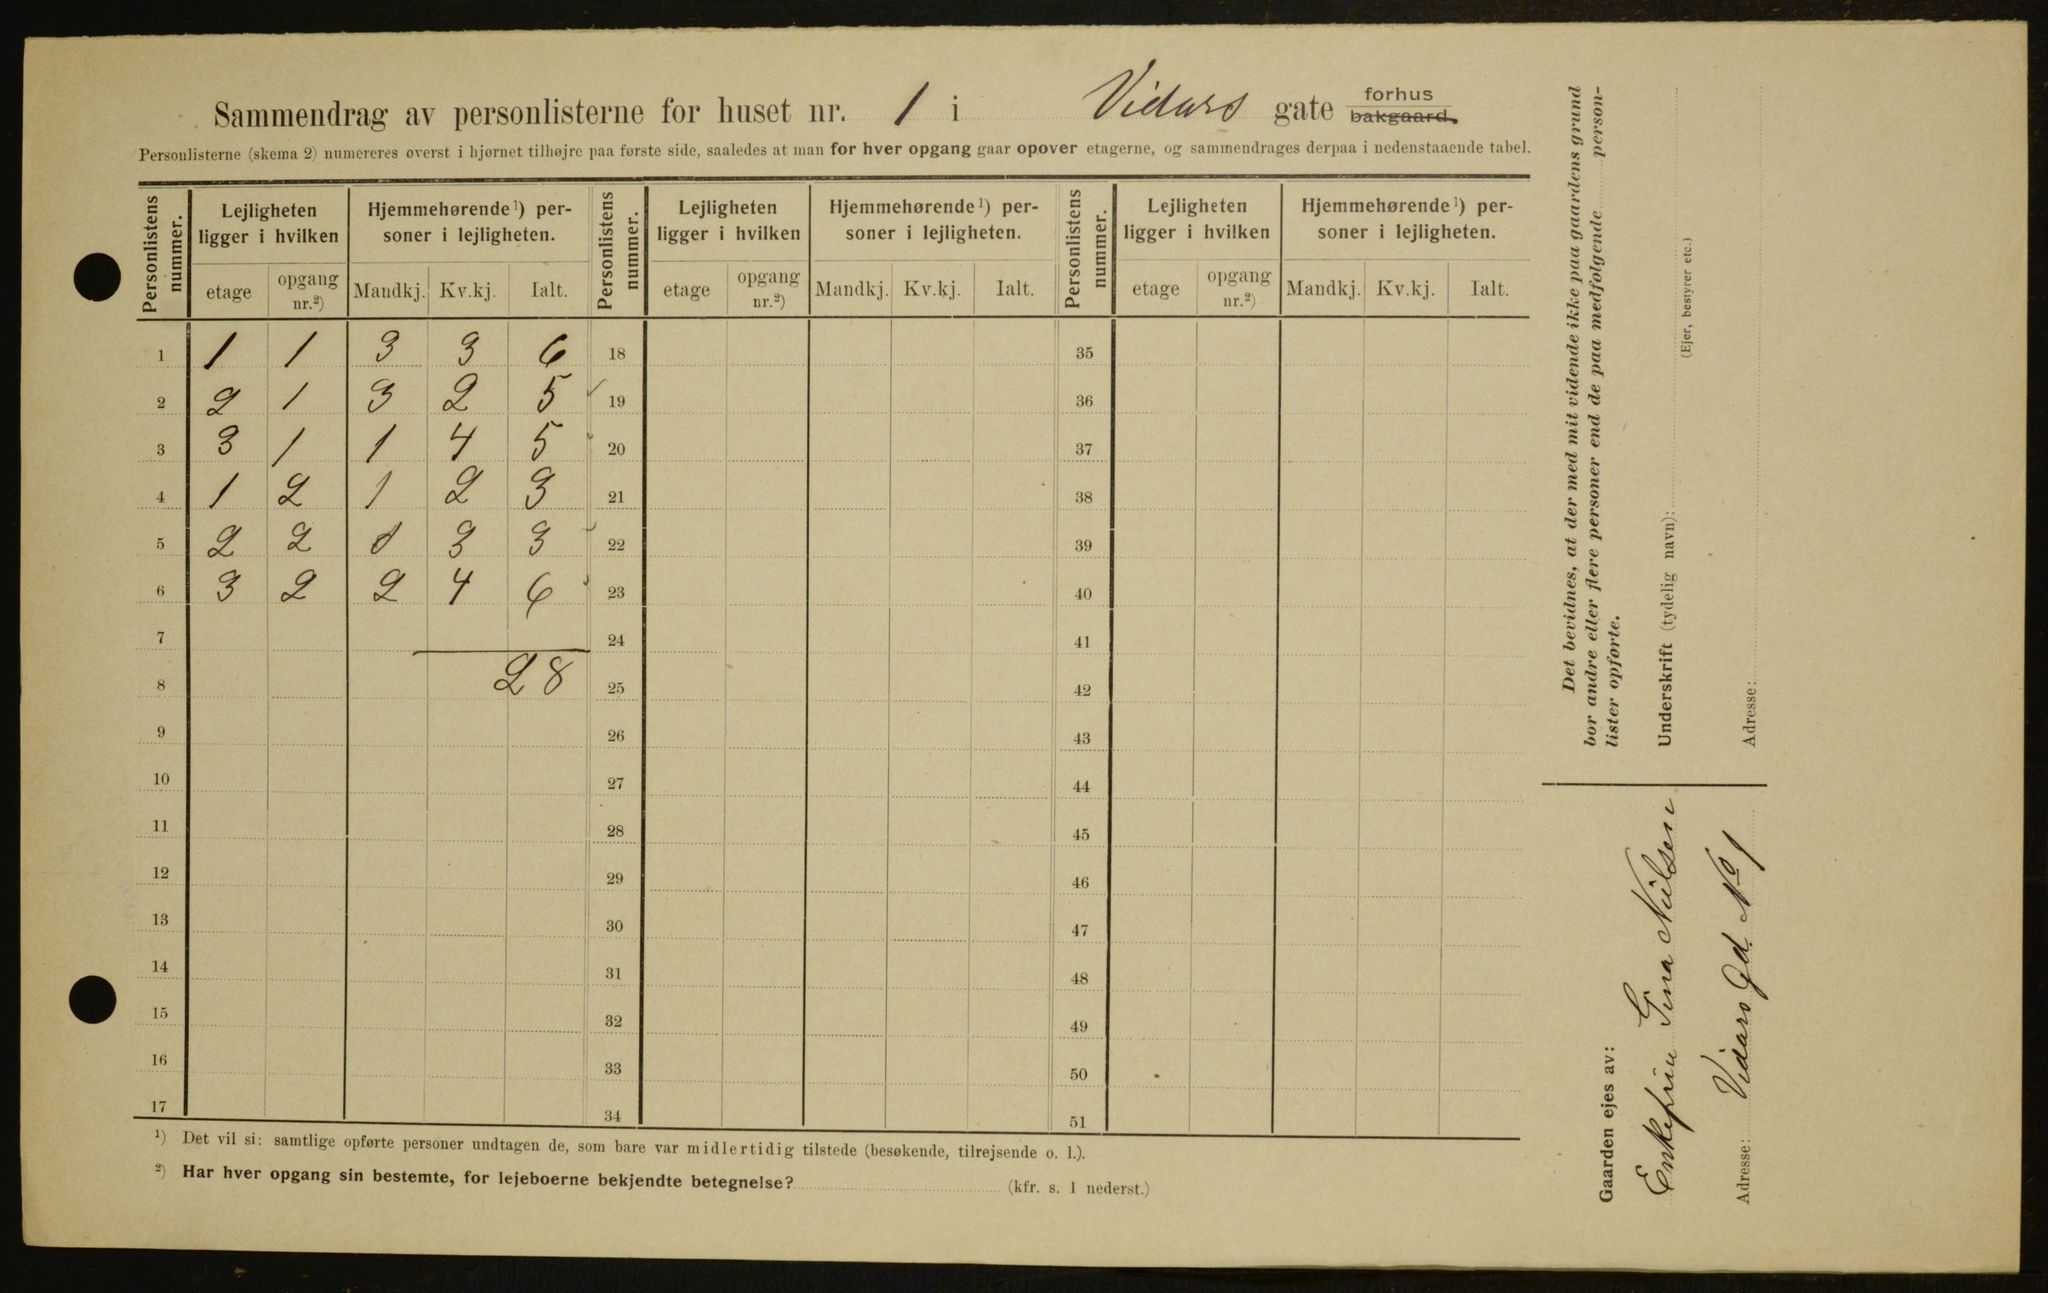 Sammendrag av personlisterne for huset nr. 1 i Vidars gate forhus bakgaard.
Personlisterne (skema 2) numereres øverst i hjørnet tilhøjre paa første side, saaledes at man for hver opgang gaar opover etagerne, og sammendrages derpaa i nedenstaaende tabel.
Personlistens nummer. Lejligheten ligger i hvilken Hjemmehørende ¹) personer i lejligheten. Personlistens nummer. Lejligheten ligger i hvilken Hjemmehørende ¹) personer i lejligheten. Personlistens nummer. Lejligheten ligger i hvilken Hjemmehørende ¹) personer i lejligheten.
etage opgang nr.²) Mandkj. Kv.kj. Ialt. etage opgang nr.²) Mandkj. Kv.kj. Ialt. etage opgang nr.²) Mandkj. Kv.kj. Ialt.
1 1 1 3 3 6 18 35
2 2 1 3 2 5 19 36
3 3 1 1 4 5 20 37
4 1 2 1 2 3 21 38
5 2 2 0 3 3 22 39
6 3 2 2 4 6 23 40
7 24 41
8 28 25 42
9 26 43
10 27 44
11 28 45
12 29 46
13 30 47
14 31 48
15 32 49
16 33 50
17 34 51
¹) Det vil si: samtlige opførte personer undtagen de, som bare var midlertidig tilstede (besøkende, tilrejsende o. l.).
²) Har hver opgang sin bestemte, for lejeboerne bekjendte betegnelse? (kfr. s. 1 nederst.)
Det bevidnes, at der med mit vidende ikke paa gaardens grund
bor andre eller flere personer end de paa medfølgende person-
lister opførte.
Underskrift (tydelig navn):
(Ejer, bestyrer etc.)
Adresse:
Gaarden ejes av:
Enkefru Gina Nilsen
Adresse: Vidars Gd. No 1